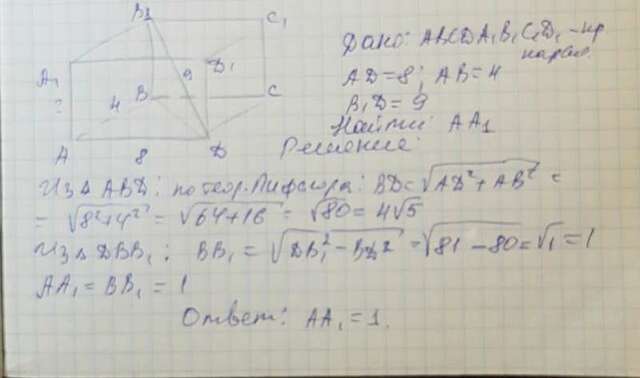 B₁
C₁
Дано: ABCDA₁B₁C₁D₁ - пр
паралл.
A₁
D₁
9
?
AD = 8; AB = 4
4
B
C
B₁D = 9
Найти: AA₁
A
8
D
Решение:
Из Δ ABD: по теор. Пифагора: BD = √AD² + AB² =
= √8² + 4² = √64 + 16 = √80 = 4√5
Из Δ DBB₁: BB₁ = √DB₁² − BD² = √81 − 80 = √1 = 1
AA₁ = BB₁ = 1
Ответ: AA₁ = 1.